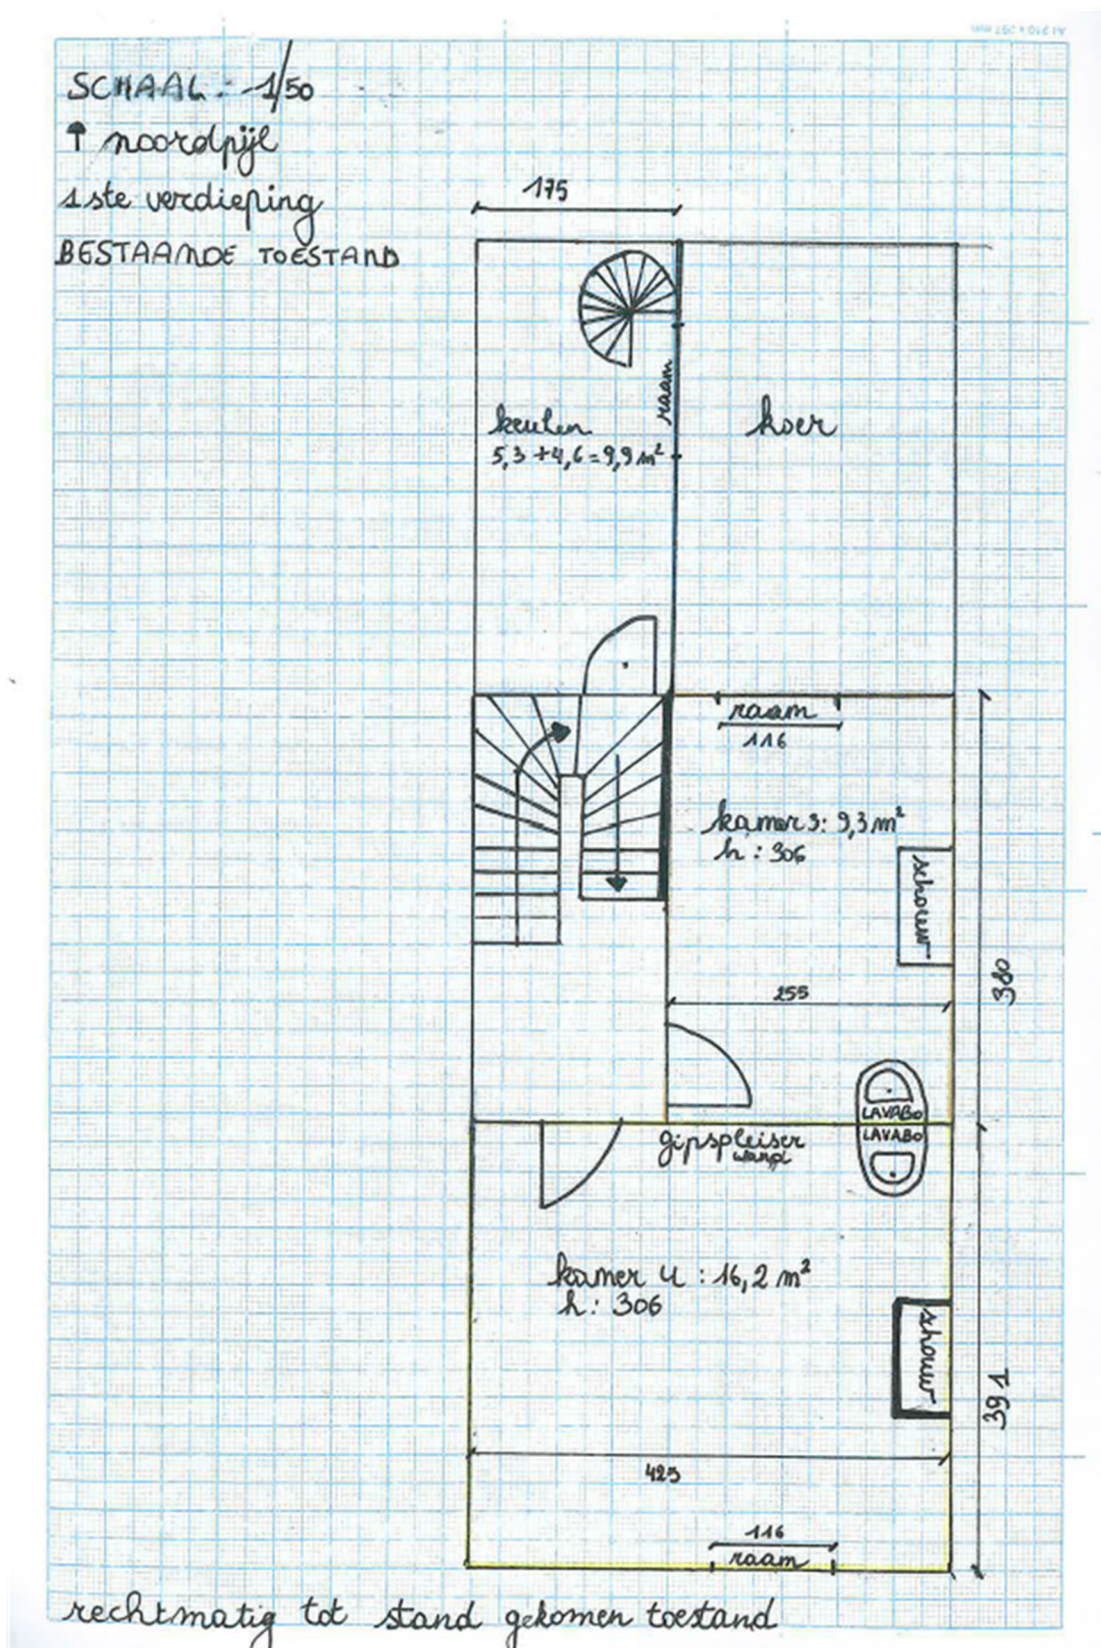 A4 210 x 297 mm
SCHAAL: 1/50
noordpijl
1ste verdieping
BESTAANDE TOESTAND
175
raam
keuken
koer
5,3 + 4,6 = 9,9 m²
raam
116
kamer 3: 9,3 m²
h: 306
schouw
380
255
LAVABO
LAVABO
gipspleister
wand
kamer 4: 16,2 m²
h: 306
schouw
391
425
116
raam
rechtmatig tot stand gekomen toestand